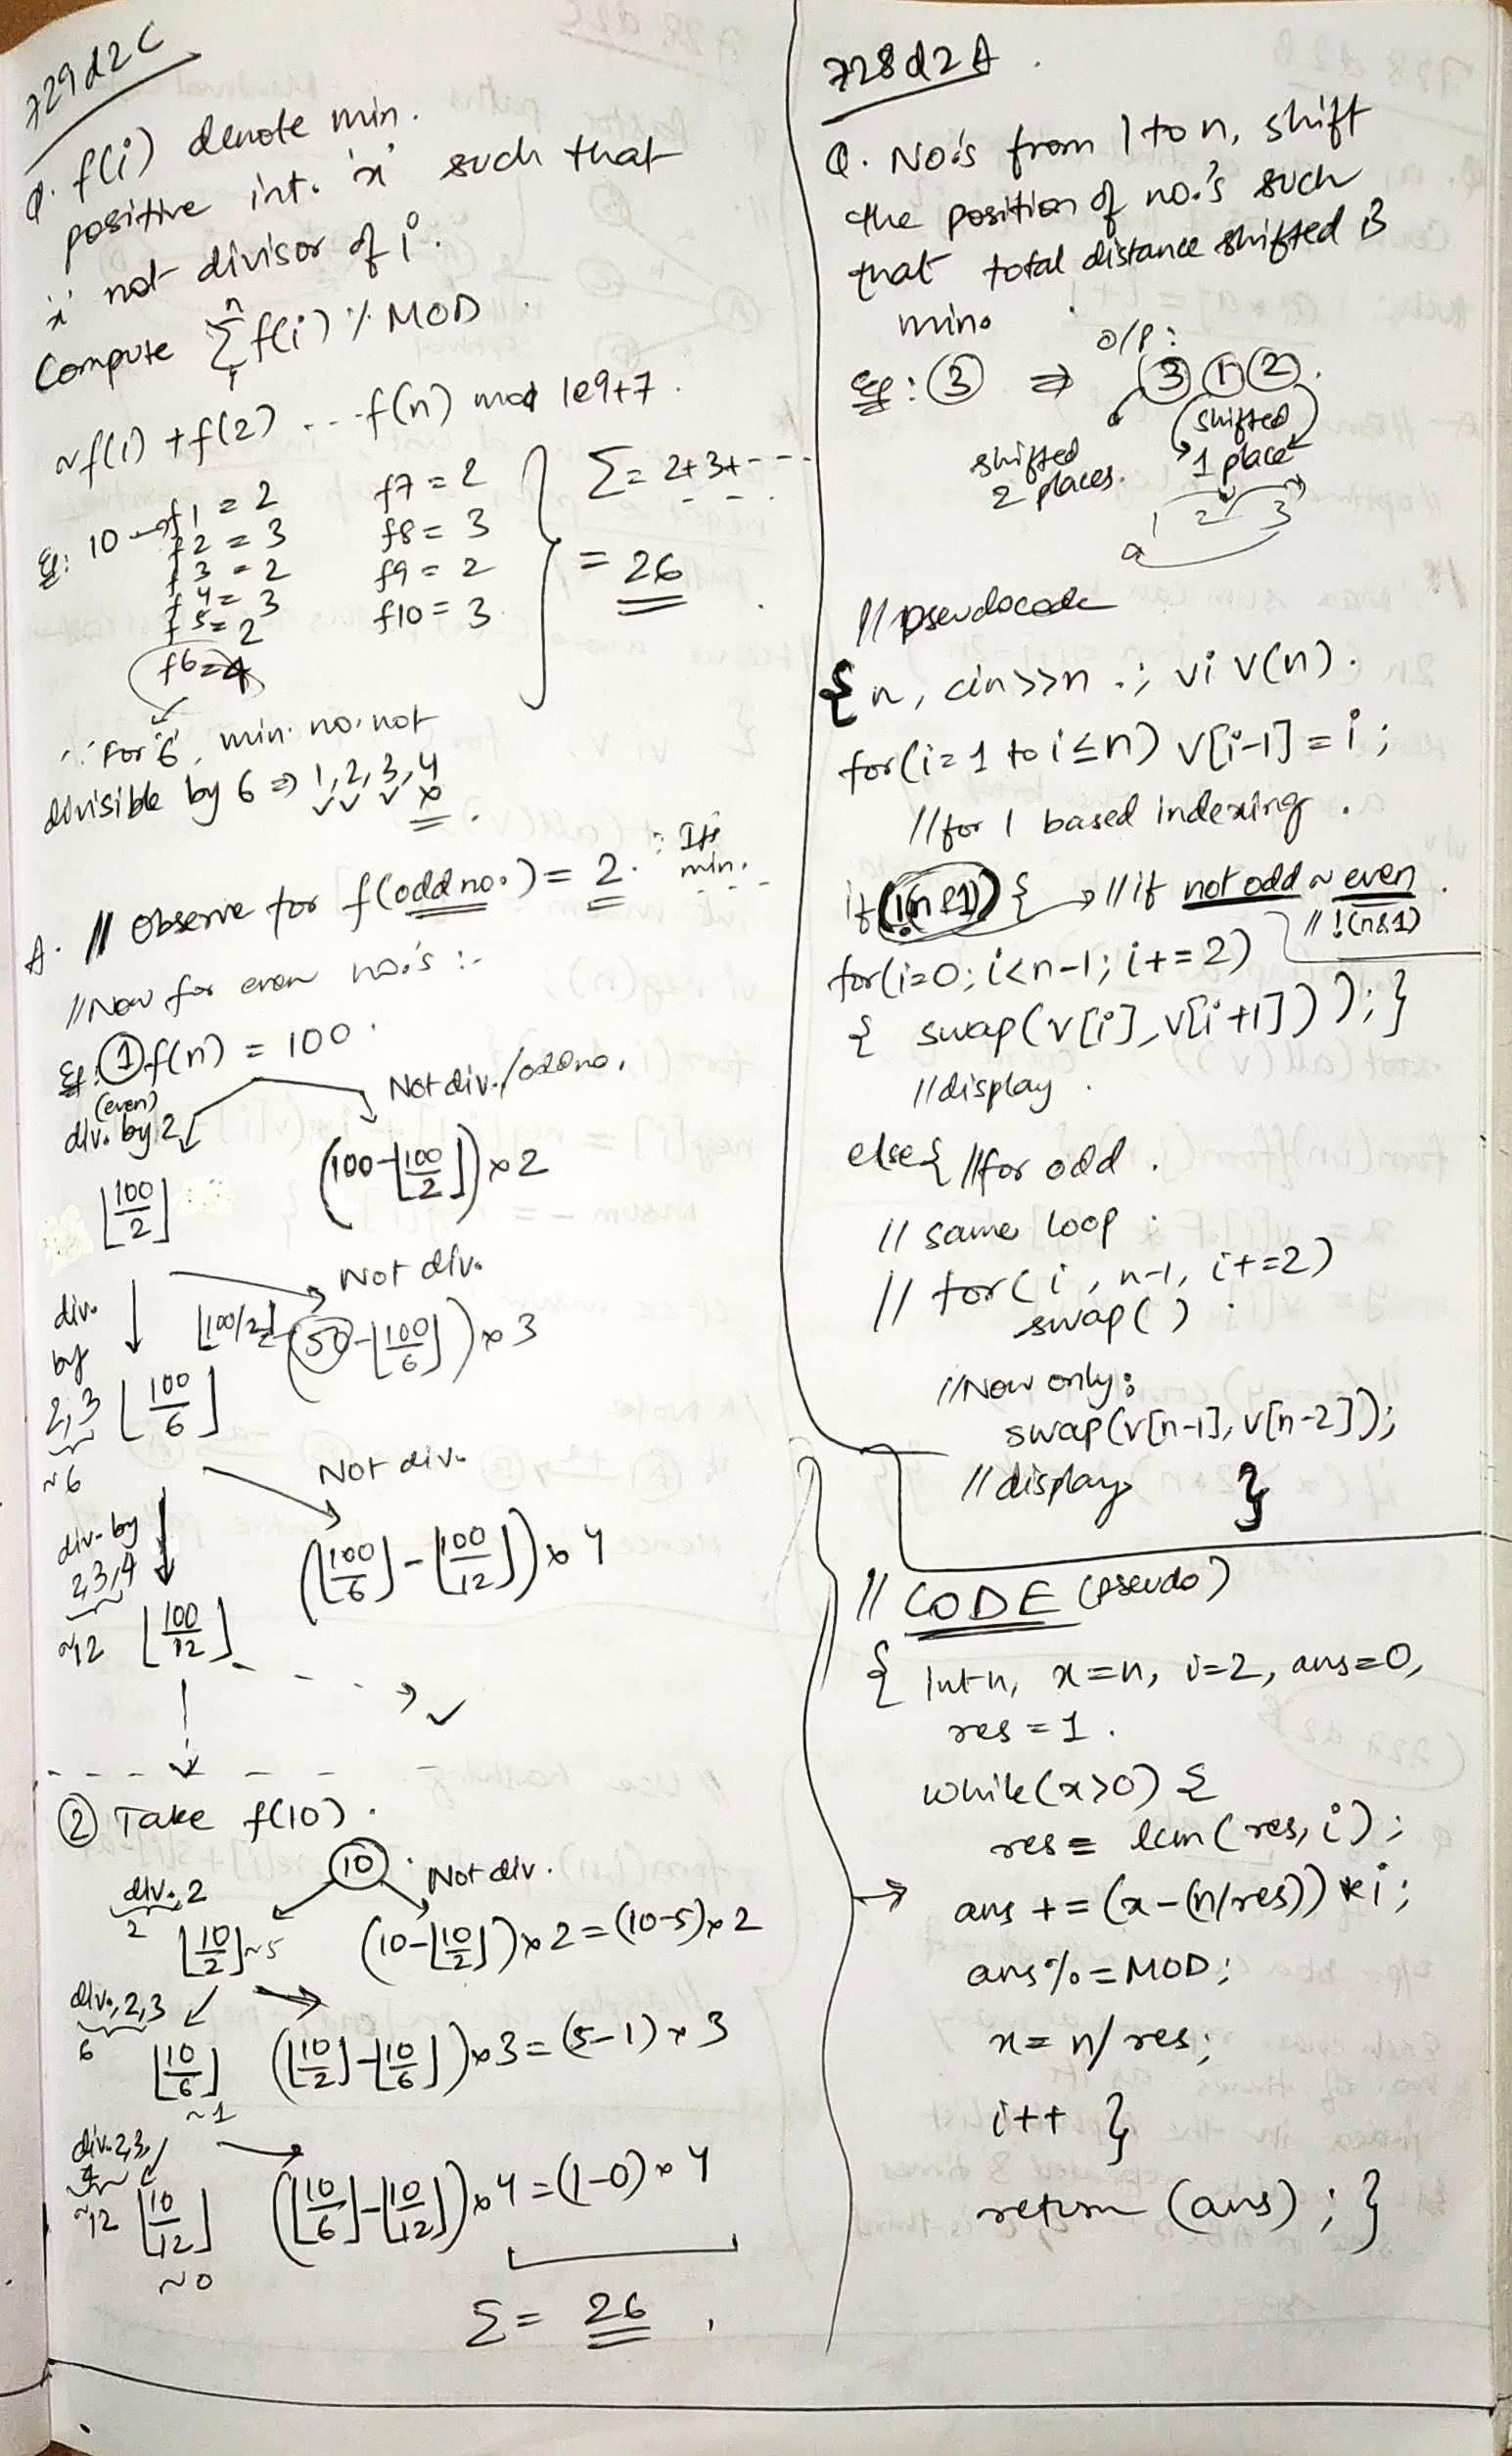 729d2C
Q. f(i) denote min.
positive int. 'x' such that
'x' not divisor of i.
Compute n Σ 1 f(i) % MOD
~f(1) + f(2) ... f(n) mod 1e9+7.
Eg: 10 → f1 = 2
f2 = 3
f3 = 2
f4 = 3
f5 = 2
f6 = 4
f7 = 2
f8 = 3
f9 = 2
f10 = 3
Σ = 2+3+----
= 26
∵ For '6', min. no. not
divisible by 6 ⇒ 1, 2, 3, 4
✓ ✓ ✓ x
A. // Observe for f(odd no.) = 2. ∵ Its
min.
// Now for even no.s :-
Eg: ① f(n) = 100.
(even)
div. by 2
Not div./odd no.
⌊100/2⌋
(100-⌊100/2⌋) x 2
div.
by
2,3
~6
Not div.
⌊100/2⌋
(50-⌊100/6⌋) x 3
⌊100/6⌋
Not div.
div. by
2,3,4
~12
(⌊100/6⌋-⌊100/12⌋) x 4
⌊100/12⌋
✓
② Take f(10).
10
div. 2
2
Not div.
⌊10/2⌋ ~5
(10-⌊10/2⌋) x 2 = (10-5) x 2
div. 2,3
6
⌊10/6⌋
~1
(⌊10/2⌋-⌊10/6⌋) x 3 = (5-1) x 3
div. 2,3,
4
~12
⌊10/12⌋
~0
(⌊10/6⌋-⌊10/12⌋) x 4 = (1-0) x 4
Σ = 26
728d2A.
Q. No.s from 1 to n, shift
the position of no.'s such
that total distance shifted is
min.
o/p:
Eg: ③ ⇒ ③ ① ②.
shifted
2 places.
shifted
1 place
1 2 3
// pseudocode
{ n, cin>>n.; vi v(n).
for(i=1 to i≤n) v[i-1] = i;
// for 1 based indexing.
if(!(n&1)) { → // if not odd ~ even.
// !(n&1)
for(i=0; i<n-1; i+=2)
{ swap(v[i], v[i+1])); }
// display.
else { // for odd.
// same loop:
// for( i, n-1, i+=2)
swap( ).
// Now only:
swap(v[n-1], v[n-2]);
// display }
// CODE (pseudo)
{ int n, x=n, i=2, ans=0,
res = 1.
while(x>0) {
res = lcm(res, i);
ans += (x-(n/res)) * i;
ans %= MOD;
x = n/res;
i++ }
return (ans); }